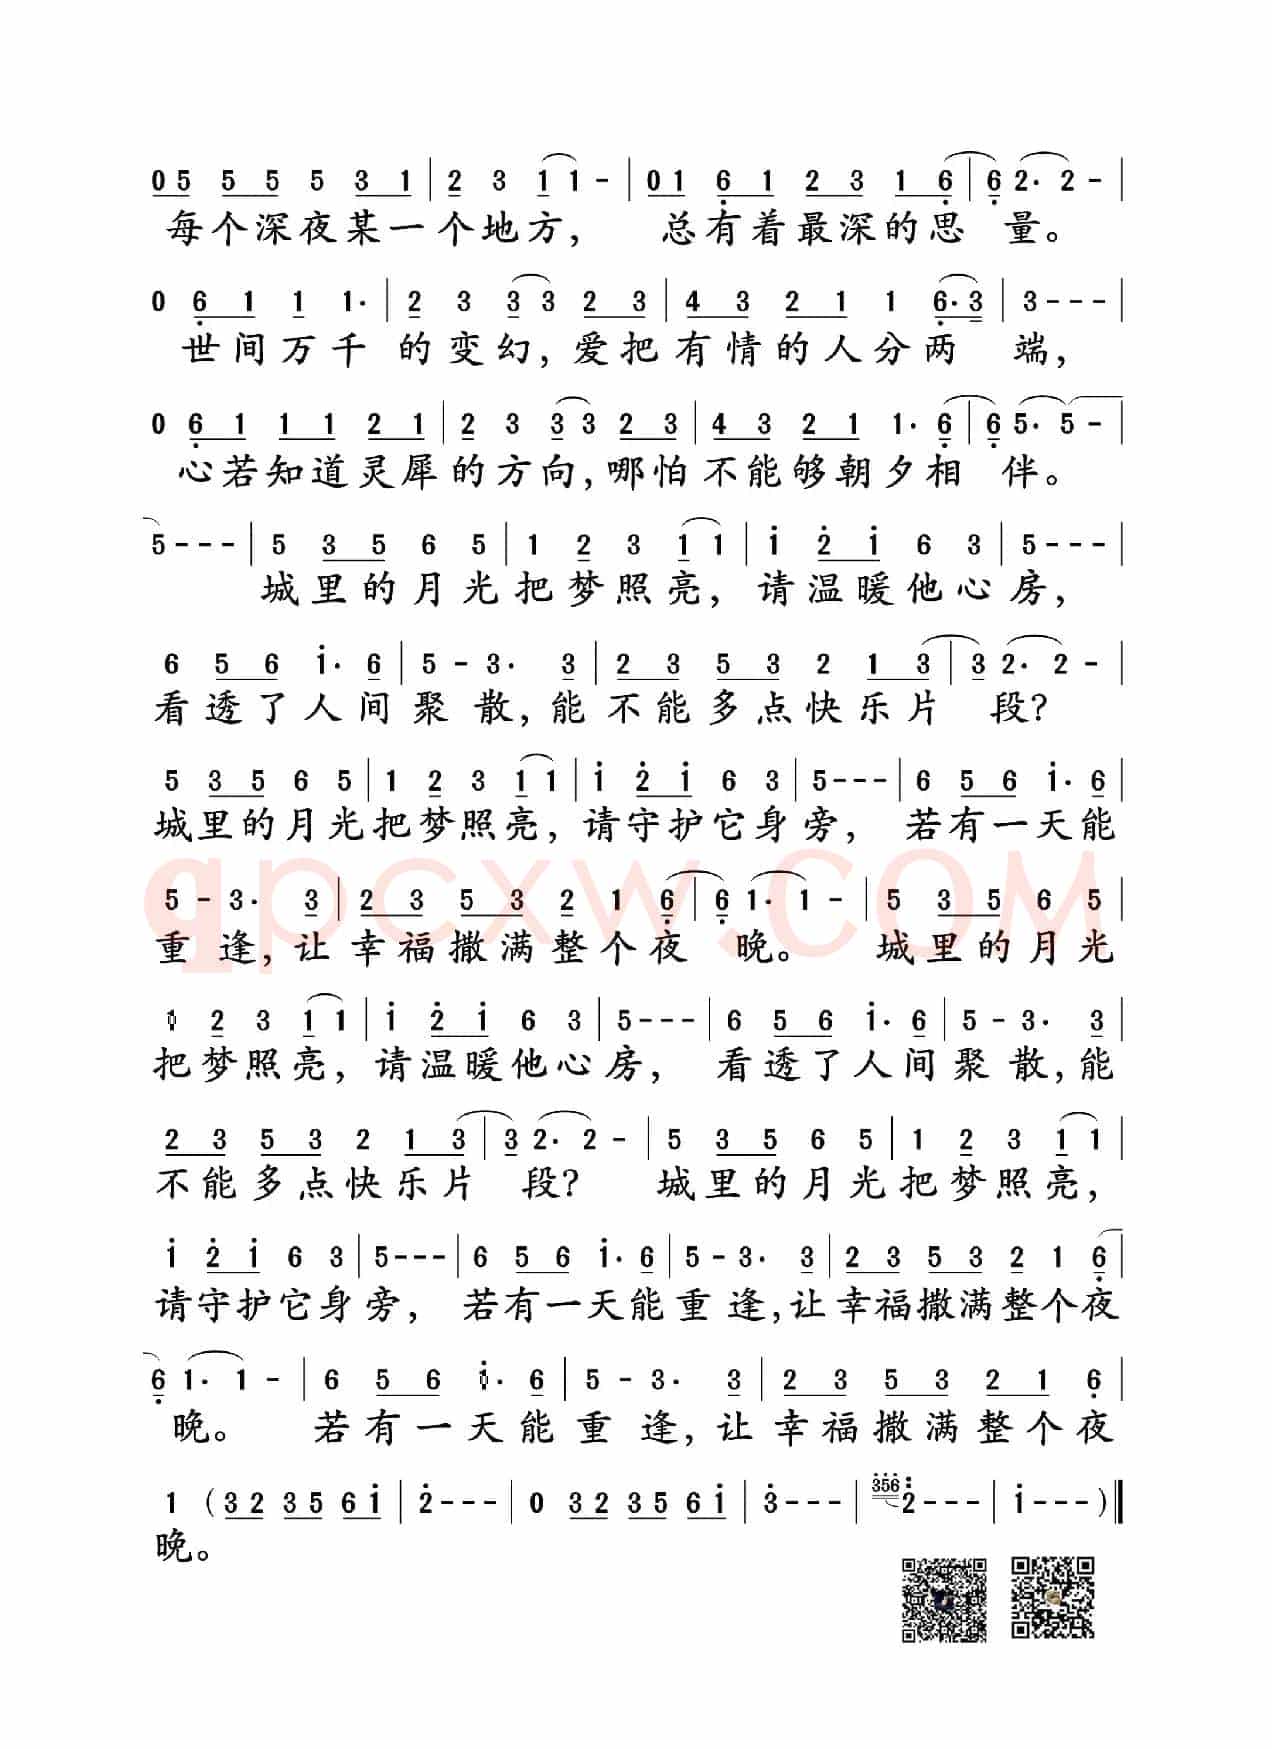 0 5 5 5 5 3 1 | 2 3 1 1 - | 0 1 6 1 2 3 1 6 | 6 2· 2 - |
每个深夜某一个地方, 总有着最深的思 量。
0 6 1 1 1· | 2 3 3 3 2 3 | 4 3 2 1 1 6· 3 | 3 - - - |
世间万千 的变幻, 爱把有情的人分两 端,
0 6 1 1 1 2 1 | 2 3 3 3 2 3 | 4 3 2 1 1· 6 | 6 5· 5 - |
心若知道灵犀的方向, 哪怕不能够朝夕相 伴。
5 - - - | 5 3 5 6 5 | 1 2 3 1 1 | i 2 i 6 3 | 5 - - - |
城里的月光把梦照亮, 请温暖他心房,
6 5 6 i· 6 | 5 - 3· 3 | 2 3 5 3 2 1 3 | 3 2· 2 - |
看透了人间聚 散, 能不能多点快乐片 段?
5 3 5 6 5 | 1 2 3 1 1 | i 2 i 6 3 | 5 - - - | 6 5 6 i· 6 |
城里的月光把梦照亮, 请守护它身旁, 若有一天能
5 - 3· 3 | 2 3 5 3 2 1 6 | 6 1· 1 - | 5 3 5 6 5 |
重 逢, 让幸福撒满整个夜 晚。 城里的月光
1 2 3 1 1 | i 2 i 6 3 | 5 - - - | 6 5 6 i· 6 | 5 - 3· 3 |
把梦照亮, 请温暖他心房, 看透了人间聚 散, 能
2 3 5 3 2 1 3 | 3 2· 2 - | 5 3 5 6 5 | 1 2 3 1 1 |
不能多点快乐片 段? 城里的月光把梦照亮,
i 2 i 6 3 | 5 - - - | 6 5 6 i· 6 | 5 - 3· 3 | 2 3 5 3 2 1 6 |
请守护它身旁, 若有一天能重 逢, 让幸福撒满整个夜
6 1· 1 - | 6 5 6 i· 6 | 5 - 3· 3 | 2 3 5 3 2 1 6 |
晚。 若有一天能重 逢, 让幸福撒满整个夜
1 (3 2 3 5 6 i | 2 - - - | 0 3 2 3 5 6 i | 3 - - - | 356 2 - - - | i - - - )‖
晚。
qpcxw.COM